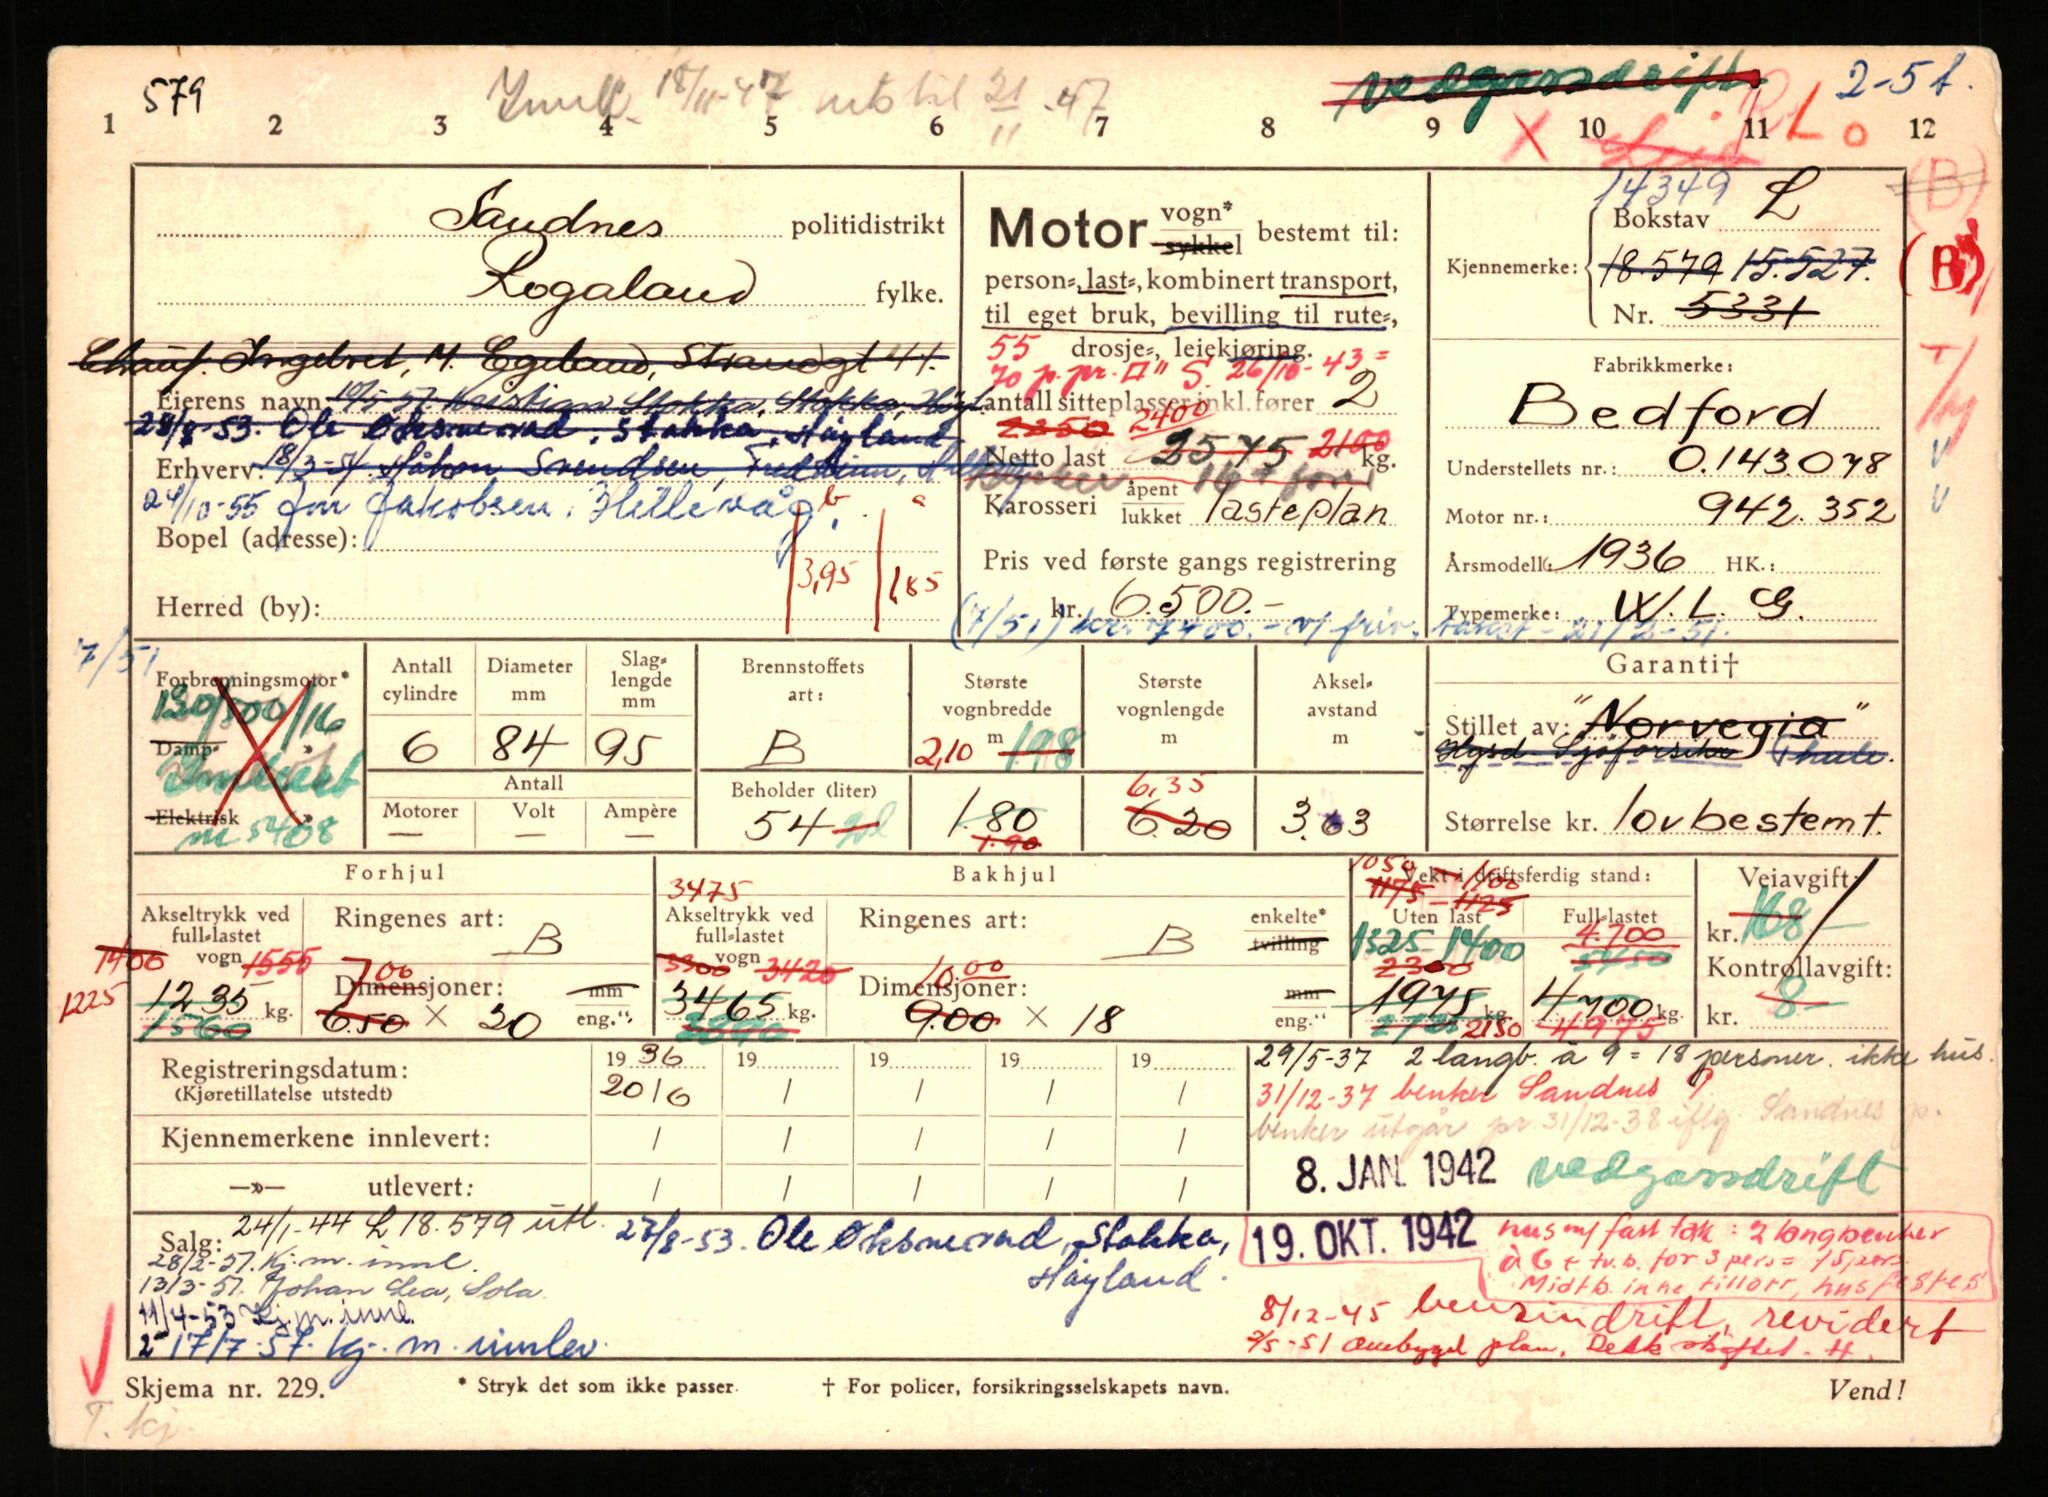 579
18/11-47 ut til 21/11-47
vedgassdrift
2-5 t.
1 2 3 4 5 6 7 8 9 10 11 12
L
14349
(B)
Sandnes politidistrikt
Rogaland fylke.
Chauf. Ingebret, M. Egeland, Strandgt 44.
Eierens navn 10/5-57. Kristian Stokka, Stokka, Høyl.
28/8-53. Ole Oksnevad, Stokka, Høyland
Erhverv: 18/3-54 Håkon Svendsen,
24/10-55 Jon Jakobsen, Hillevåg.
b a
Bopel (adresse):
3,95 1,85
Herred (by):
Motor vogn* sykkel bestemt til:
person-, last-, kombinert transport,
til eget bruk, bevilling til rute-,
55 drosje-, leiekjøring.
70 p. pr. S. 26/10-43 =
antall sitteplasser inkl. fører 2
2350 2400
Netto last 2575 2100 kg.
Karosseri åpent lukket lasteplan
Pris ved første gangs registrering
kr. 6.500.-
(7/51) kr. 7400.- v/ friv. takst - 21/2-51.
Bokstav L
Kjennemerke: 18.579 15.527.
(B)
Nr. 5331
Fabrikkmerke:
Bedford
Understellets nr.: 0.143078
Motor nr.: 942.352
Årsmodell: 1936 HK.:
Typemerke: W. L. G.
7/51
Forbrenningsmotor*
130/500/16
Damp- »
Elektrisk »
m 5408
Antall cylindre
Diameter mm
Slaglengde mm
6 84 95
Antall
Motorer Volt Ampère
— — —
Brennstoffets art:
B
Beholder (liter)
54
Største vognbredde m
2,10 198
1.80
1.90
Største vognlengde m
6,35
6.20
Akselavstand m
3.63
Garanti†
Stillet av: "Norvegia"
Thule.
Størrelse kr. lovbestemt.
Forhjul
Akseltrykk ved full-lastet vogn
1400 1555
1225 1235 kg.
1560
Ringenes art: B
7.00
Dimensjoner: mm
6.50 × 20 eng."
Bakhjul
3475
Akseltrykk ved full-lastet vogn
3300 3420
3465 kg.
Ringenes art: B enkelte* tvilling
10.00
Dimensjoner: mm
9.00 × 18 eng."
1050 - 1100
Vekt i driftsferdig stand:
1175 - 1125
Uten last Full-lastet
1325 1400 4.700
2300 5450
1975 kg. 4700 kg.
2150 4975
Veiavgift:
kr. 168-
Kontrollavgift:
kr. 8-
Registreringsdatum: 1936 19 19 19 19
(Kjøretillatelse utstedt) 20/6 / / / /
Kjennemerkene innlevert: / / / / /
—»— utlevert: / / / / /
29/5-37 2 langb. à 9 = 18 personer. ikke hus.
31/12-37 benker Sandnes P
benker utgår pr. 31/12-38 iflg Sandnes p.
8. JAN. 1942 vedgassdrift
19. OKT. 1942 hus m/ fast tak: 2 langbenker
à 6 + tv.b. for 3 pers = 15 pers.
Midtb. ikke tillatt, hus festes
8/12-45 bensindrift, revidert
2/5-51 Ombygd plan, Dekk skiftet. H.
Salg: 24/1-44 L 18.579 utl.
28/2-51. Kj. m. innl.
13/3-51. Johan Lea, Sola.
11/4-53 Kj. m. innl.
17/7-57. Kj. m. innlev.
27/8-53. Ole Oksnevad, Stokka,
Høyland.
Skjema nr. 229. * Stryk det som ikke passer. † For policer, forsikringsselskapets navn. Vend!
T. kj.